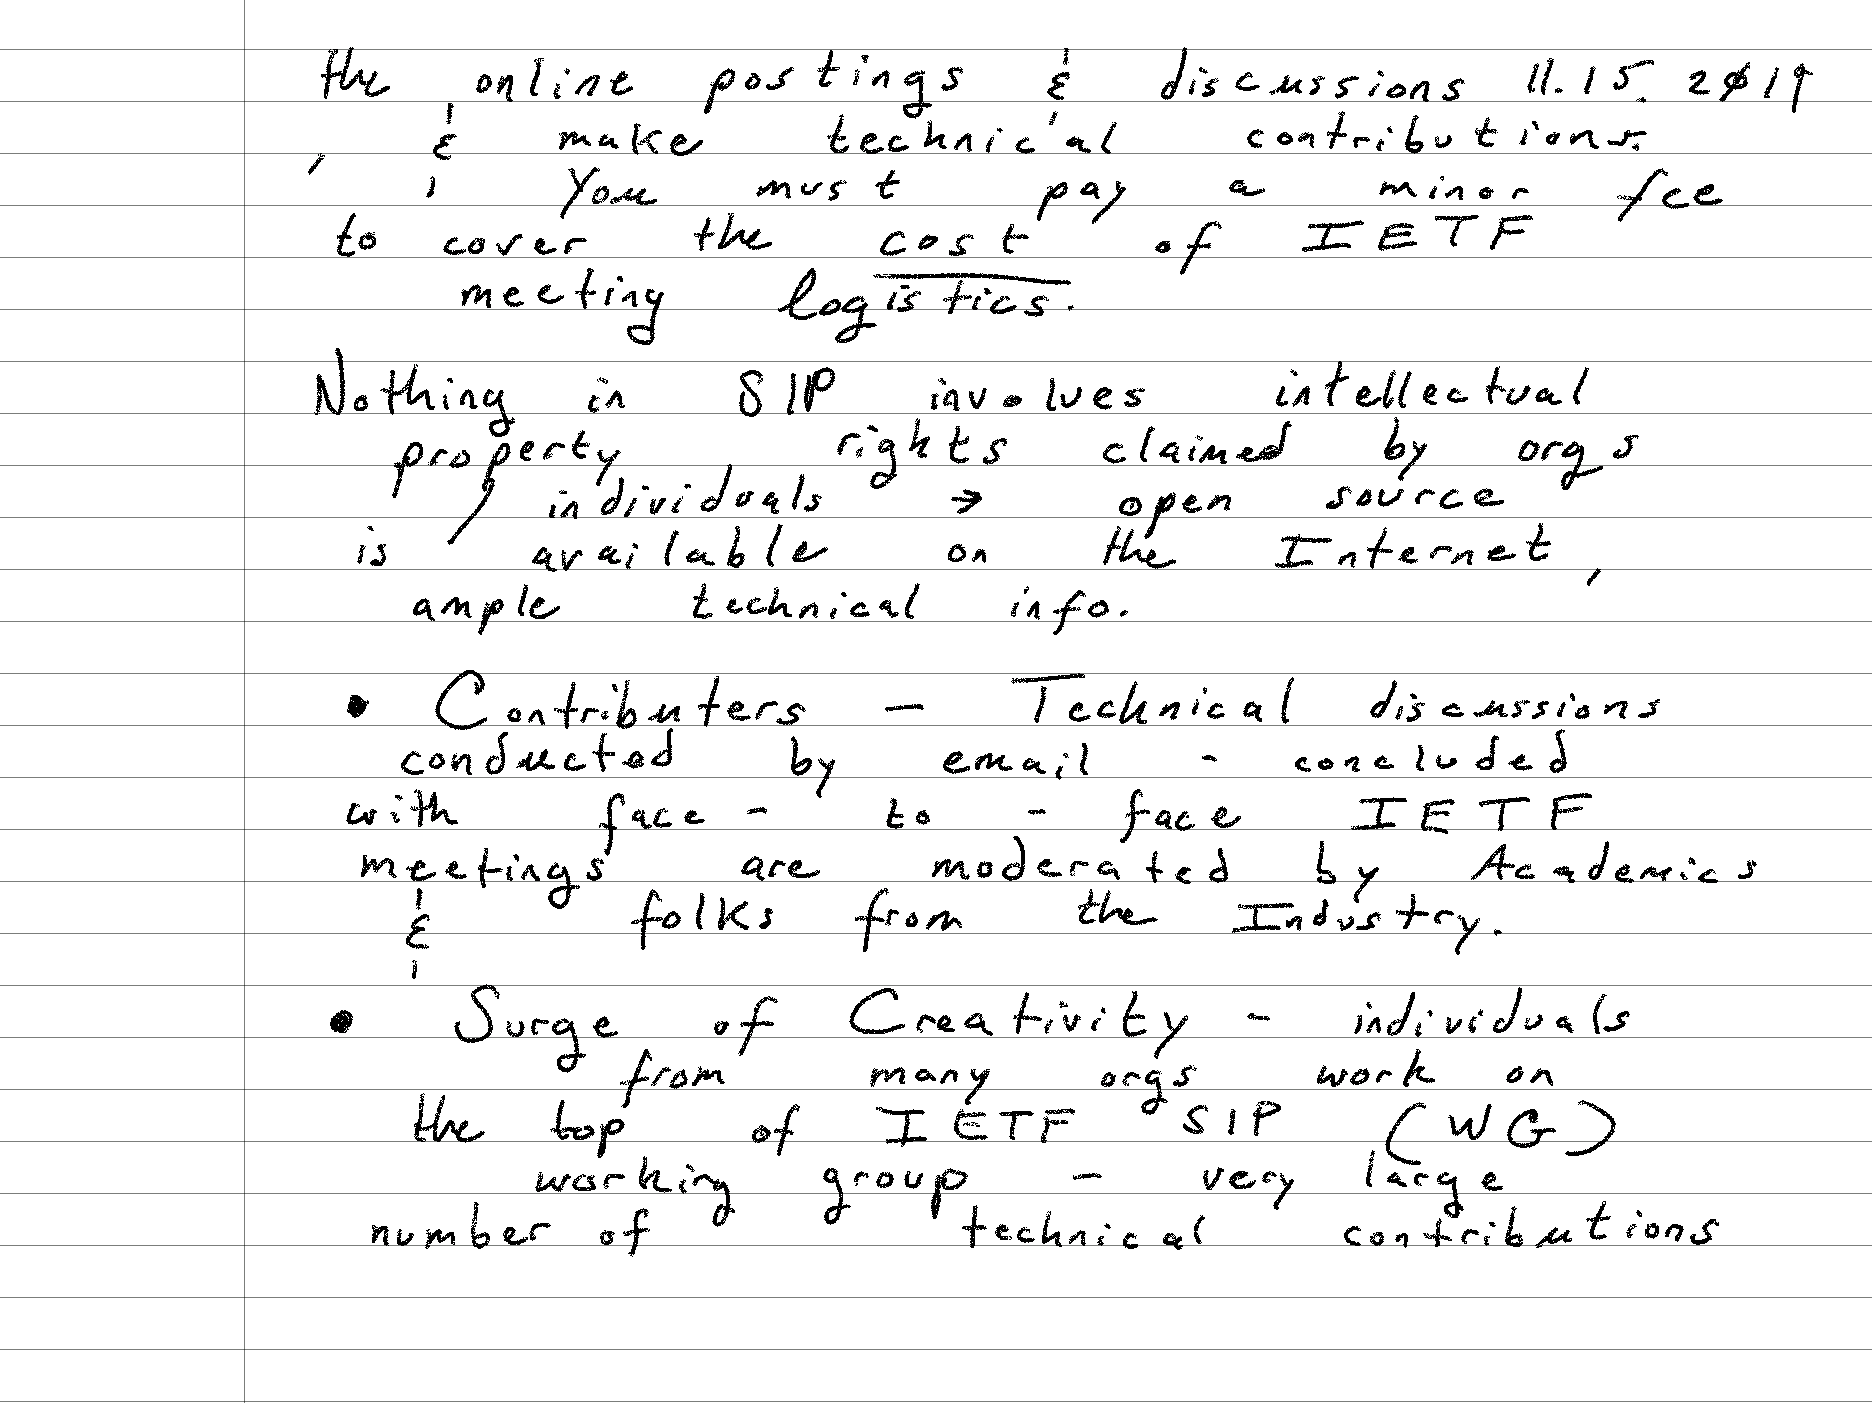 the online postings & discussions 11.15.2019
, & make technical contributions.
You must pay a minor fee
to cover the cost of IETF
meeting logistics.
Nothing in SIP involves intellectual
property rights claimed by orgs
, individuals → open source
is available on the Internet,
ample technical info.
• Contributers – Technical discussions
conducted by email - concluded
with face - to - face IETF
meetings are moderated by Academics
& folks from the Industry.
• Surge of Creativity - individuals
from many orgs work on
the top of IETF SIP (WG)
working group - very large
number of technical contributions